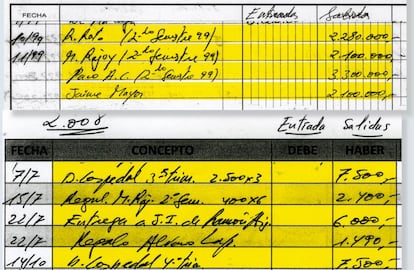 FECHA Entradas Salidas
10/99 R. Rato (2º Semestre 99) 2.280.000,-
11/99 M. Rajoy (2º Semestre 99) 2.100.000,-
Paco A.C. (2º Semestre 99) 3.300.000,-
Jaime Mayor 2.100.000,-
2.008 Entrada Salidas
FECHA CONCEPTO DEBE HABER
7/7 D. Cospedal 3º trim. 2.500x3 7.500,-
15/7 M. Raj. 2º Sem. 400x6 2.400,-
22/7 Entrega a J.I. de 6.000,-
22/7 Regalo 1.490,-
14/10 Cospedal 4º trim. 7.500,-